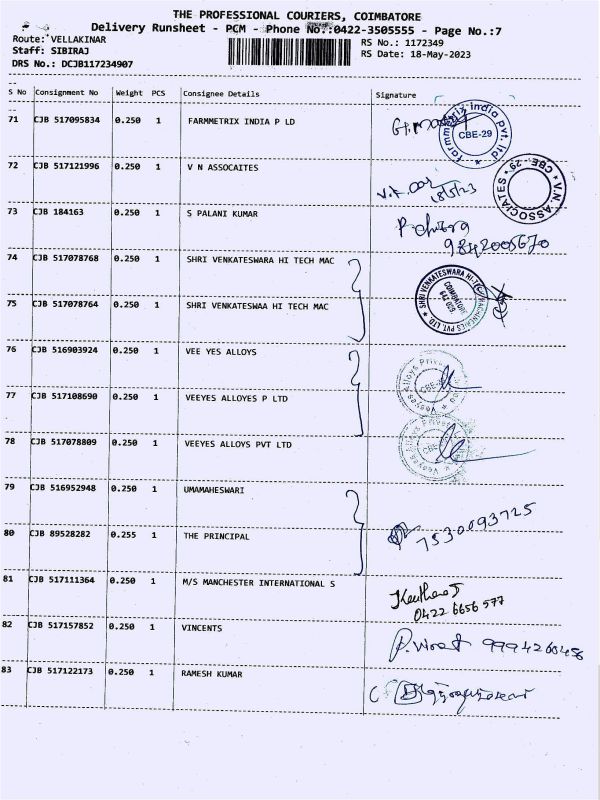 THE PROFESSIONAL COURIERS, COIMBATORE
Delivery Runsheet - PCM - Phone No.:0422-3505555 - Page No.:7
Route: VELLAKINAR
RS No.: 1172349
Staff: SIBIRAJ
RS Date: 18-May-2023
DRS No.: DCJB117234907
S No Consignment No Weight PCS Consignee Details Signature
71 CJB 517095834 0.250 1 FARMMETRIX INDIA P LD
farmmetrix india pvt. ltd CBE-29
72 CJB 517121996 0.250 1 V N ASSOCAITES
18/5/23
V.N. ASSOCIATES CBE. 29.
73 CJB 184163 0.250 1 S PALANI KUMAR P. chitra
9842005670
74 CJB 517078768 0.250 1 SHRI VENKATESWARA HI TECH MAC
SHRI VENKATESWARA HI-TECH MACHINERIES PVT. LTD. COIMBATORE
75 CJB 517078764 0.250 1 SHRI VENKATESWAA HI TECH MAC
76 CJB 516903924 0.250 1 VEE YES ALLOYS
77 CJB 517108690 0.250 1 VEEYES ALLOYES P LTD
78 CJB 517078809 0.250 1 VEEYES ALLOYES PVT LTD
79 CJB 516952948 0.250 1 UMAMAHESWARI
80 CJB 89528282 0.255 1 THE PRINCIPAL 7530093725
81 CJB 517111364 0.250 1 M/S MANCHESTER INTERNATIONAL S
0422 6656 577
82 CJB 517157852 0.250 1 VINCENTS
83 CJB 517122173 0.250 1 RAMESH KUMAR